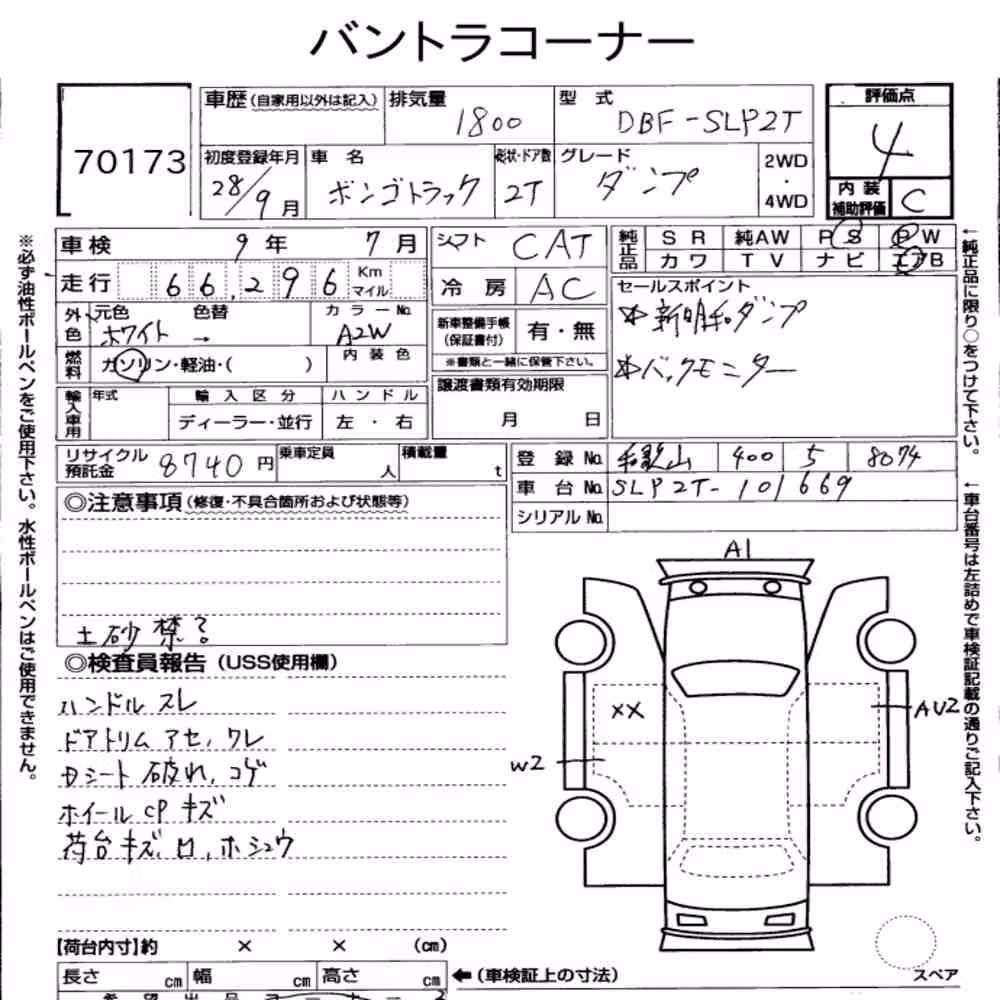 バントラコーナー
70173
車歴(自家用以外は記入) 排気量 1800 型式 DBF-SLP2T
評価点 4
初度登録年月 28/9月 車名 ボンゴトラック 形状・ドア数 2T グレード ダンプ 2WD・4WD
内装補助評価 C
車検 9年 7月
シフト CAT
純正品 SR 純AW PS PW
カワ TV ナビ エアB
走行 66,296 Km マイル
冷房 AC
セールスポイント
外色 元色 ホワイト → 色替 カラーNo. A2W
*新明和ダンプ
新車整備手帳(保証書付) 有・無
※書類と一緒に保管下さい。
*バックモニター
燃料 ガソリン・軽油・( ) 内装色
譲渡書類有効期限
月 日
輸入車用 年式 輸入区分 ハンドル
ディーラー・並行 左・右
リサイクル預託金 8740円 乗車定員 人 積載量 t
登録No. 和歌山 400 5 8074
車台No. SLP2T-101669
シリアルNo.
◎注意事項(修復・不具合箇所および状態等)
土砂禁?
◎検査員報告(USS使用欄)
ハンドルスレ
ドアトリムアセ,ワレ
Dシート破れ,コゲ
ホイールCPキズ
荷台キズ,ロ,ホシュウ
A1
XX
AU2
W2
スペア
【荷台内寸】約 × × (cm)
長さ cm 幅 cm 高さ cm ←(車検証上の寸法)
※必ず油性ボールペンをご使用下さい。水性ボールペンはご使用できません。
←純正品に限り○をつけて下さい。
←車台番号は左詰めで車検証記載の通りご記入下さい。